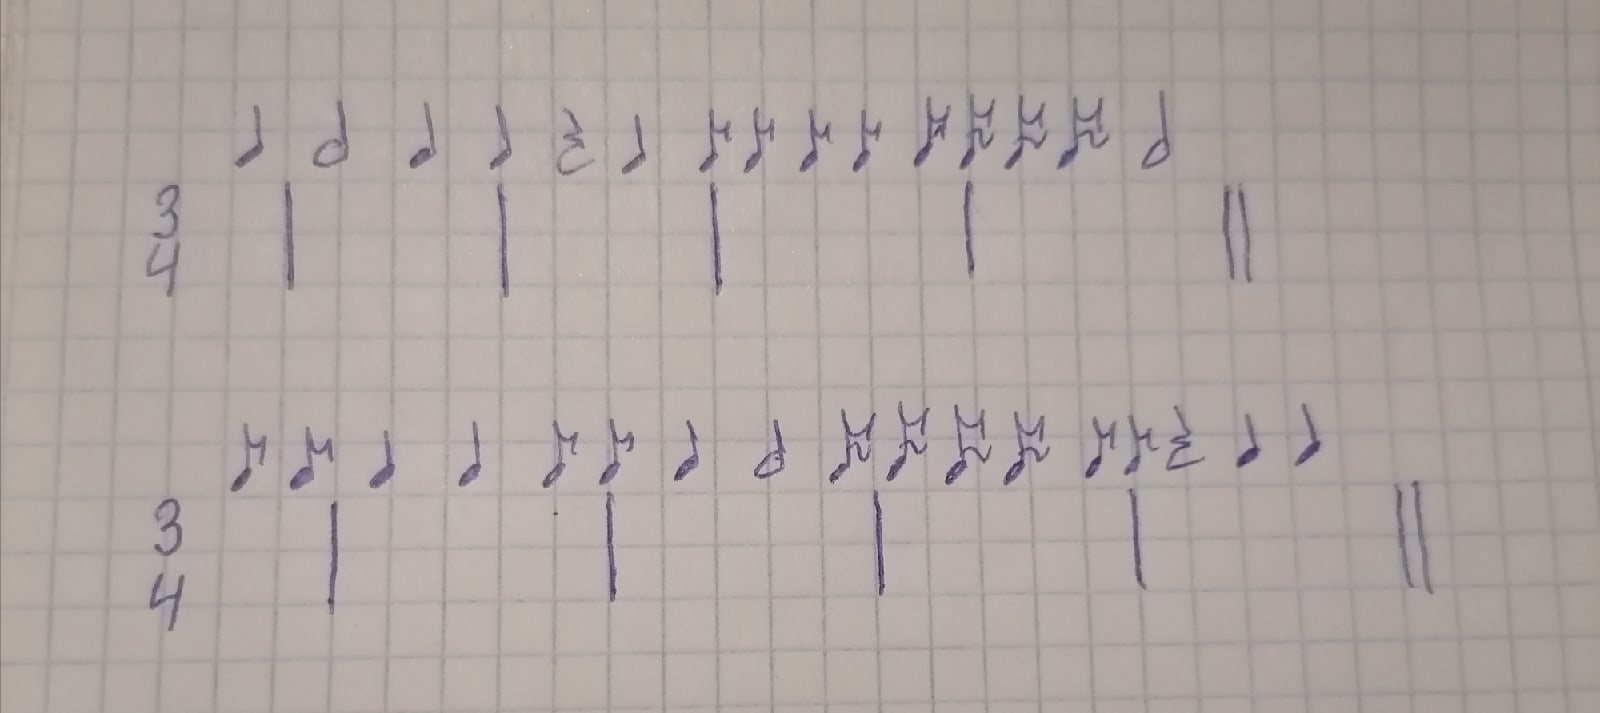 3
4
3
4